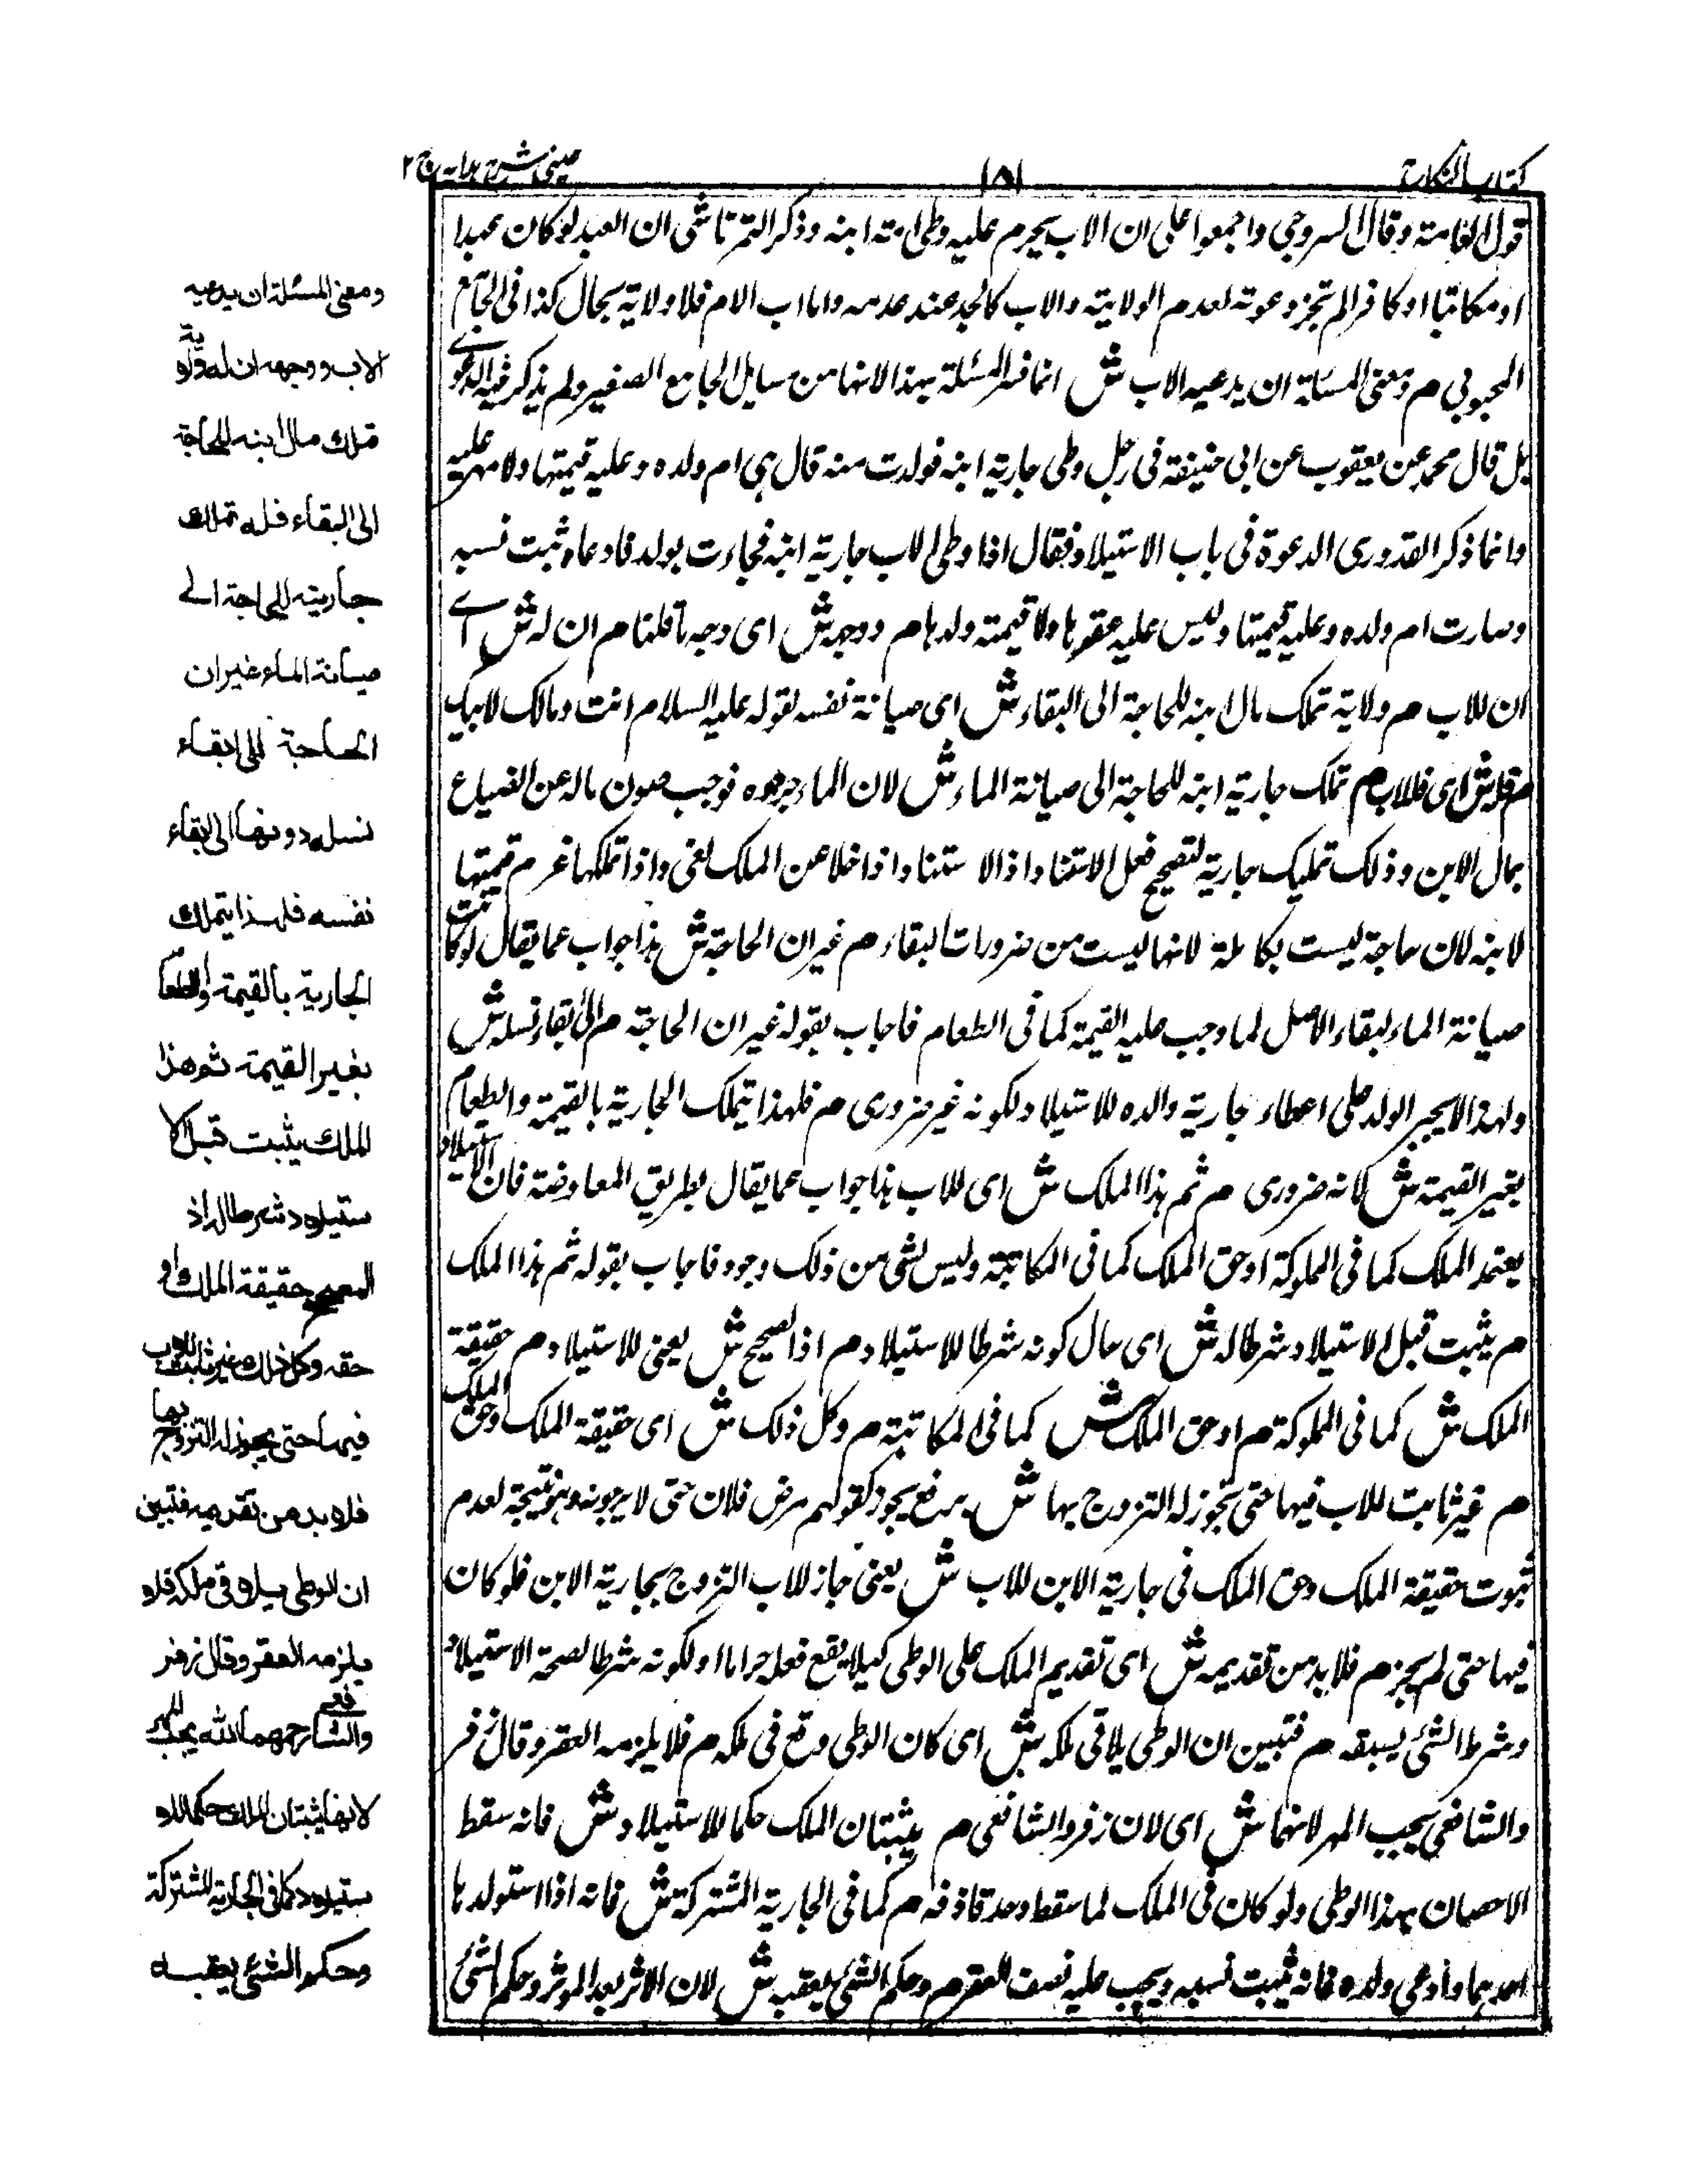 كتاب النكاح
١٥١
عينى شرح هدايه ج ٢
قول العامة وقال السروجي واجمعوا على ان الاب يحرم عليه وطى امته ابنه وذكر التمرتاشى ان العبد لو كان عبدا
او مكاتبا او كافرا لم تجز دعوته لعدم الولاية والاب كالجد عند عدمه واما اب الام فلا ولاية بحال كذا فى الجامع
المحبوبي م ومعنى المسئلة ان يدعيه الاب ش انما فسر المسئلة بهذا لانها من مسايل الجامع الصغير ولم يذكر فيه الدعوى
بل قال محمد عن يعقوب عن ابى حنيفة فى رجل وطى جارية ابنه فولدت منه قال هى ام ولده وعليه قيمتها ولا مهر عليه
وانما ذكر القدورى الدعوة فى باب الاستيلاد فقال اذا وطى الاب جارية ابنه فجاءت بولد فادعاه ثبت نسبه
وصارت ام ولده وعليه قيمتها وليس عليه عقرها ولا قيمة ولدها م ووجهه ش اى وجه ما قلنا م ان له ش اے
ان للاب م ولاية تملك مال ابنه للحاجة الى البقاء ش اى صيانة نفسه لقوله عليه السلام انت ومالك لابيك
م فله ش اى فللاب م تملك جارية ابنه للحاجة الى صيانة الماء ش لان الماء جزءه فوجب صون ماله عن الضياع
بمال الابن وذلك تمليك جارية لتصحيح فعل الاستناد اذ الاستناد اذا خلا عن الملك لغى واذا تملكها غرم قيمتها
لابنه لان حاجة ليست بكاملة لانها ليست من ضرورات البقاء م غير ان الحاجة ش هذا جواب عما يقال لو كانت
صيانة الماء لبقاء الاصل لما وجب عليه القيمة كما فى الطعام فاجاب بقوله غير ان الحاجة م الى ابقاء نسله ش
ولهذا لا يجبر الولد على اعطاء جارية والده للاستيلاد لكونه غير ضرورى م فلهذا يتملك الجارية بالقيمة والطعام
بغير القيمة ش لانه ضرورى م ثم هذا الملك ش اى للاب هذا جواب عما يقال بطريق المعاوضة فان الاستيلاد
يعتمد الملك كما فى المملوكة او حق الملك كما فى المكاتبة وليس لشى من ذلك وجود فاجاب بقوله ثم هذا الملك
م يثبت قبل الاستيلاد شرطا له ش اى حال كونه شرطا للاستيلاد م اذ المصحح ش يعنى للاستيلاد م حقيقة
الملك ش كما فى المملوكة م او حق الملك ش كما فى المكاتبة م وكل ذلك ش اى حقيقة الملك وحق الملك
م غير ثابت للاب فيها حتى تجوز له التزوج بها ش برفع يجوز كقولهم مرض فلان حتى لا يرجونه وهو نتيجة لعدم
ثبوت حقيقة الملك وحق الملك فى جارية الابن للاب ش يعنى جاز للاب التزوج بجارية الابن فلو كان
فيها حتى لم يجز م فلا بد من تقديمه ش اى تقديم الملك على الوطى كيلا يقع فعله حراما او لكونه شرطا لصحة الاستيلاد
وشرط الشئ يسبقه م فتبين ان الوطى يلاقى ملكه ش اى كان الوطى وقع فى ملكه م فلا يلزمه العقر وقال زفر
والشافعى يجب المهر لانهما ش اى لان زفر والشافعى م يثبتان الملك حكما للاستيلاد ش فانه سقط
الاحصان بهذا الوطى ولو كان فى الملك لما سقط وحد قاذفه م كما فى الجارية المشتركة ش فانه اذا استولدها
احدهما وادعى ولده فانه يثبت نسبه ويجب عليه نصف العقر م وحكم الشئ يعقبه ش لان الاثر بعد الموثر وحكم الشئ
ومعنى المسئلة ان يدعيه
الاب ووجهه ان له ولاية
تملك مال ابنه للحاجة
الى البقاء فله تملك
جاريته للحاجة الى
صيانة الماء غير ان
الحاجة الى ابقاء
نسله دونها الى بقاء
نفسه فلهذا يتملك
الجارية بالقيمة والطعام
بغير القيمة ثم هذا
الملك يثبت قبل الا
ستيلاد شرطا له اذ
المصحح حقيقة الملك او
حقه وكل ذلك غير ثابت للاب
فيها حتى يجوز له التزوج بها
فلا بد من تقديمه فتبين
ان الوطى يلاقى ملكه فلا
يلزمه العقر وقال زفر
والشافعى رحمهما الله يجب المهر
لانهما يثبتان الملك حكما للا
ستيلاد كما فى الجارية المشتركة
وحكم الشئ يعقبه